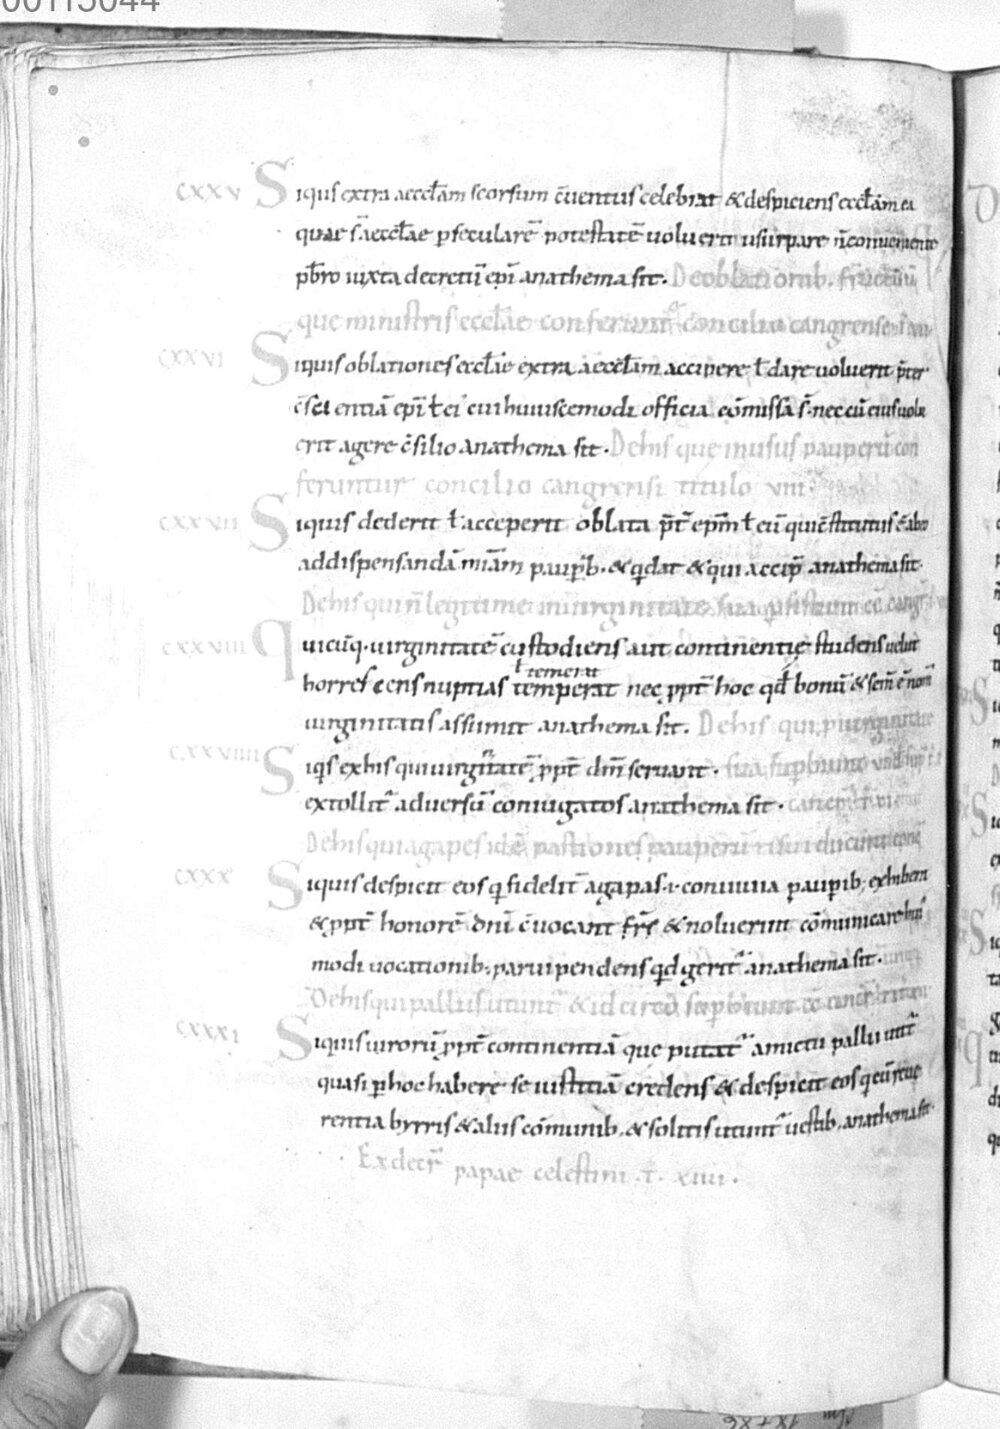 00113044
CXXV Siquis extra aeccl̄am seorsum c̄uentus celebrat & despiciens eccl̄am ea
quae s̄ aeccl̄ae p seculare̅ potestate̅ uoluerit usurpare n̄ conueniente
pb̄ro iuxta decretū ep̄i anathema sit. De oblationib. fructuū
que ministris eccl̄ae conferunt̄ concilio cangrense
CXXVI Siquis oblationes eccl̄ae extra aeccl̄am accipere ł dare uoluerit p̄ter
c̄scientiā ep̄i ł ei cui huiuscemodi officia cōmissa s̄. nec cū eius uolu
erit agere c̄silio anathema sit. De his que in usus pauperū con
feruntur concilio cangrensi titulo VIII
CXXVII Siquis dederit ł acceperit oblata p̄t̄ ep̄m ł eū qui c̄stitutus ē ab eo
ad dispensandā mīam paup̄b. & q dat & qui accip̄ anathema sit.
De his qui n̄ legitime in uirginitate sua
CXXVIII Quicūq. uirginitate̅ custodiens aut continentię studens uelut
ł temerat
horrescens nuptias temperat nec ppt̄ hoc qđ bonū & sc̄m ē nom̄
uirginitatis assumit anathema sit. De his qui
CXXVIIII Siqs ex his qui uirginitate̅ ppt̄ dm̄ seruant. sua superbiunt
extollit̄ aduersū coniugatos anathema sit.
De his qui agapes id ē pastiones pauperū
CXXX Siquis despicit eos q fidelit̄ agapas .i. conuiuia paup̄ib; exhibent
& ppt̄ honore̅ dn̄i c̄uocant fr̄s & noluerint cōmunicare hui
modi uocationib; paruipendens qđ gerit̄ anathema sit.
De his qui palliis utunt̄ & idcirco superbiunt
CXXXI Siquis uirorū ppt̄ continentiā que putat̄ amictu pallii utit̄
quasi p hoc habere se iustitiā credens & despicit eos q cū reue
rentia byrris & aliis cōmunib. & solitis utunt̄ uestib. anathema sit.
Ex decr̄ papae celestini .t̄. XIIII.